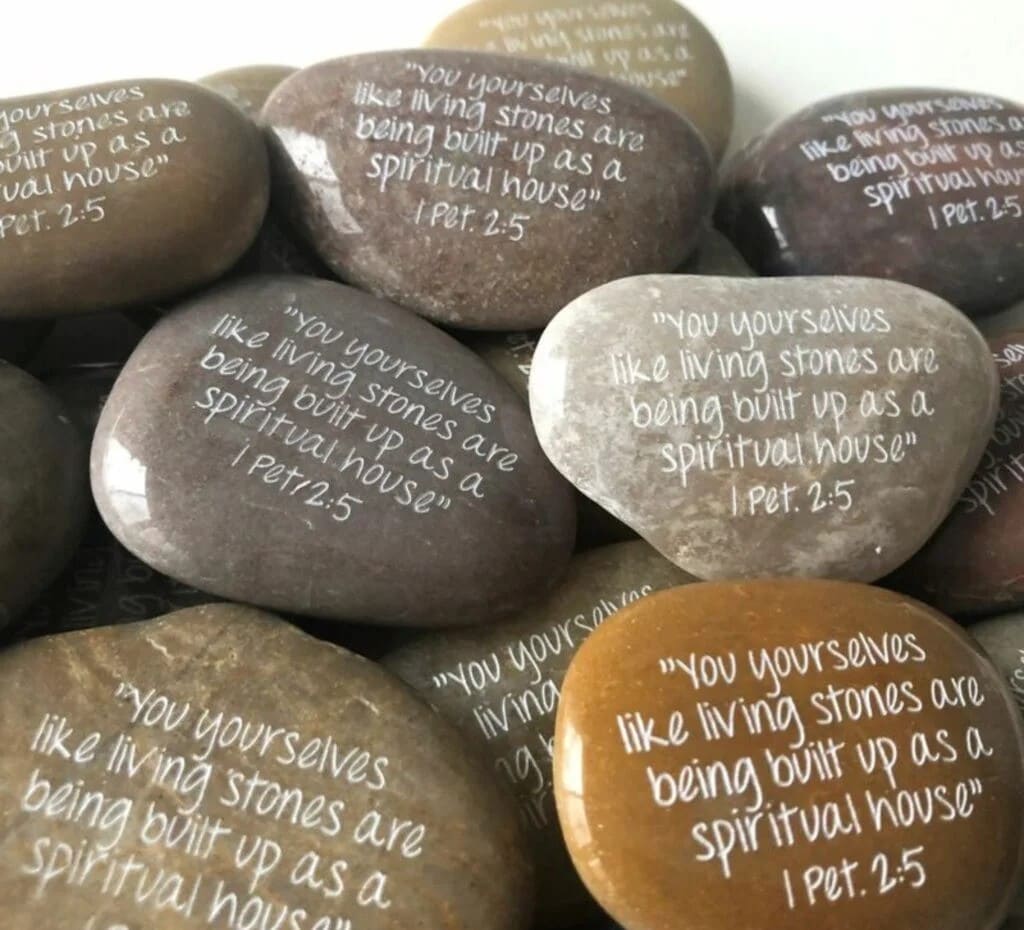 "You yourselves
living stones are
built up as a
house"
yourselves
stones are
built up as a
house"
Pet. 2:5
"You yourselves
like living stones are
being built up as a
spiritual house"
1 Pet. 2:5
"You yourselves
like living stones
being built up as
spiritual
1 Pet. 2:5
"You yourselves
like living stones are
being built up as a
spiritual house"
1 Pet. 2:5
"You yourselves
like living stones are
being built up as a
spiritual house"
1 Pet. 2:5
"You yourselves
living
"You yourselves
like living stones are
being built up as a
spiritual house"
"You yourselves
like living stones are
being built up as a
spiritual house"
1 Pet. 2:5